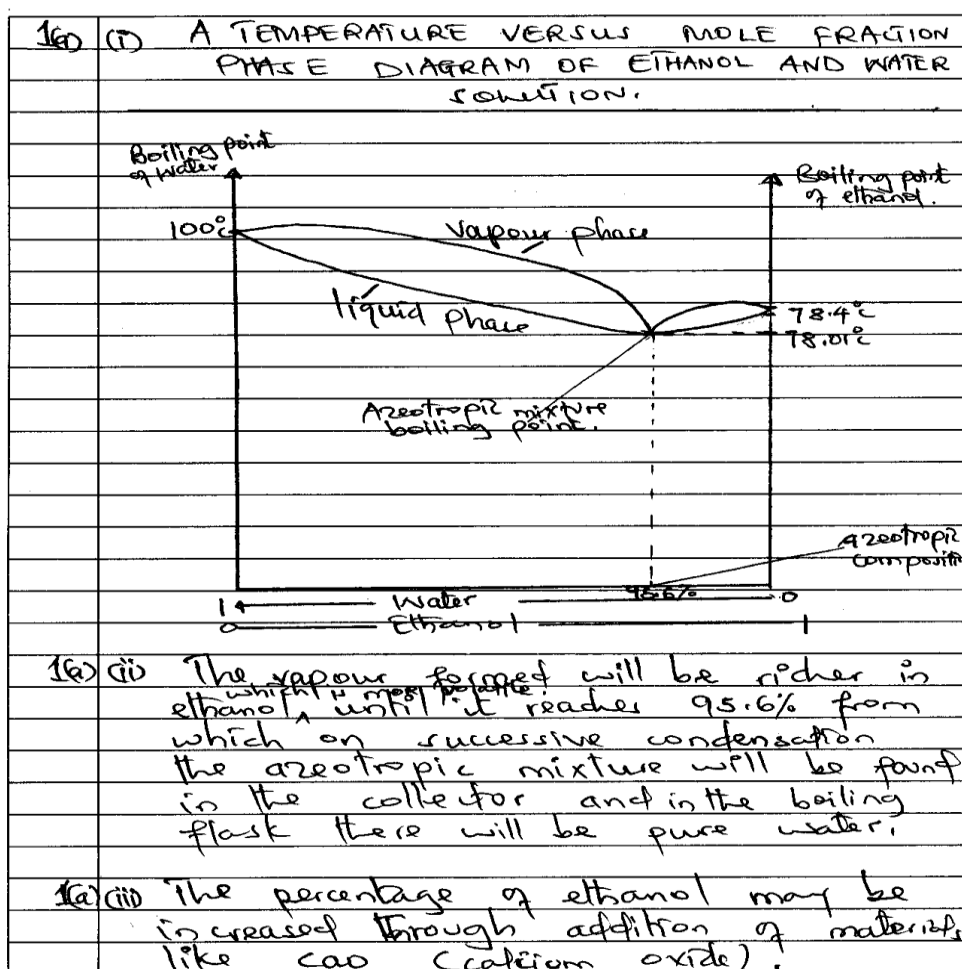 1(a) (i) A TEMPERATURE VERSUS MOLE FRACTION
PHASE DIAGRAM OF ETHANOL AND WATER
SOLUTION.
Boiling point
of water
Boiling point
of ethanol.
100°c
vapour phase
liquid phase
78.4°c
78.01°c
Azeotropic mixture
boiling point.
azeotropic
compositi
95.6%
1 Water 0
0 Ethanol 1
1(a) (ii) The vapour formed will be richer in
which is most volatile.
ethanol ^ until it reaches 95.6% from
which on successive condensation
the azeotropic mixture will be found
in the collector and in the boiling
flask there will be pure water.
1(a) (iii) The percentage of ethanol may be
increased through addition of materials
like cao (calcium oxide).